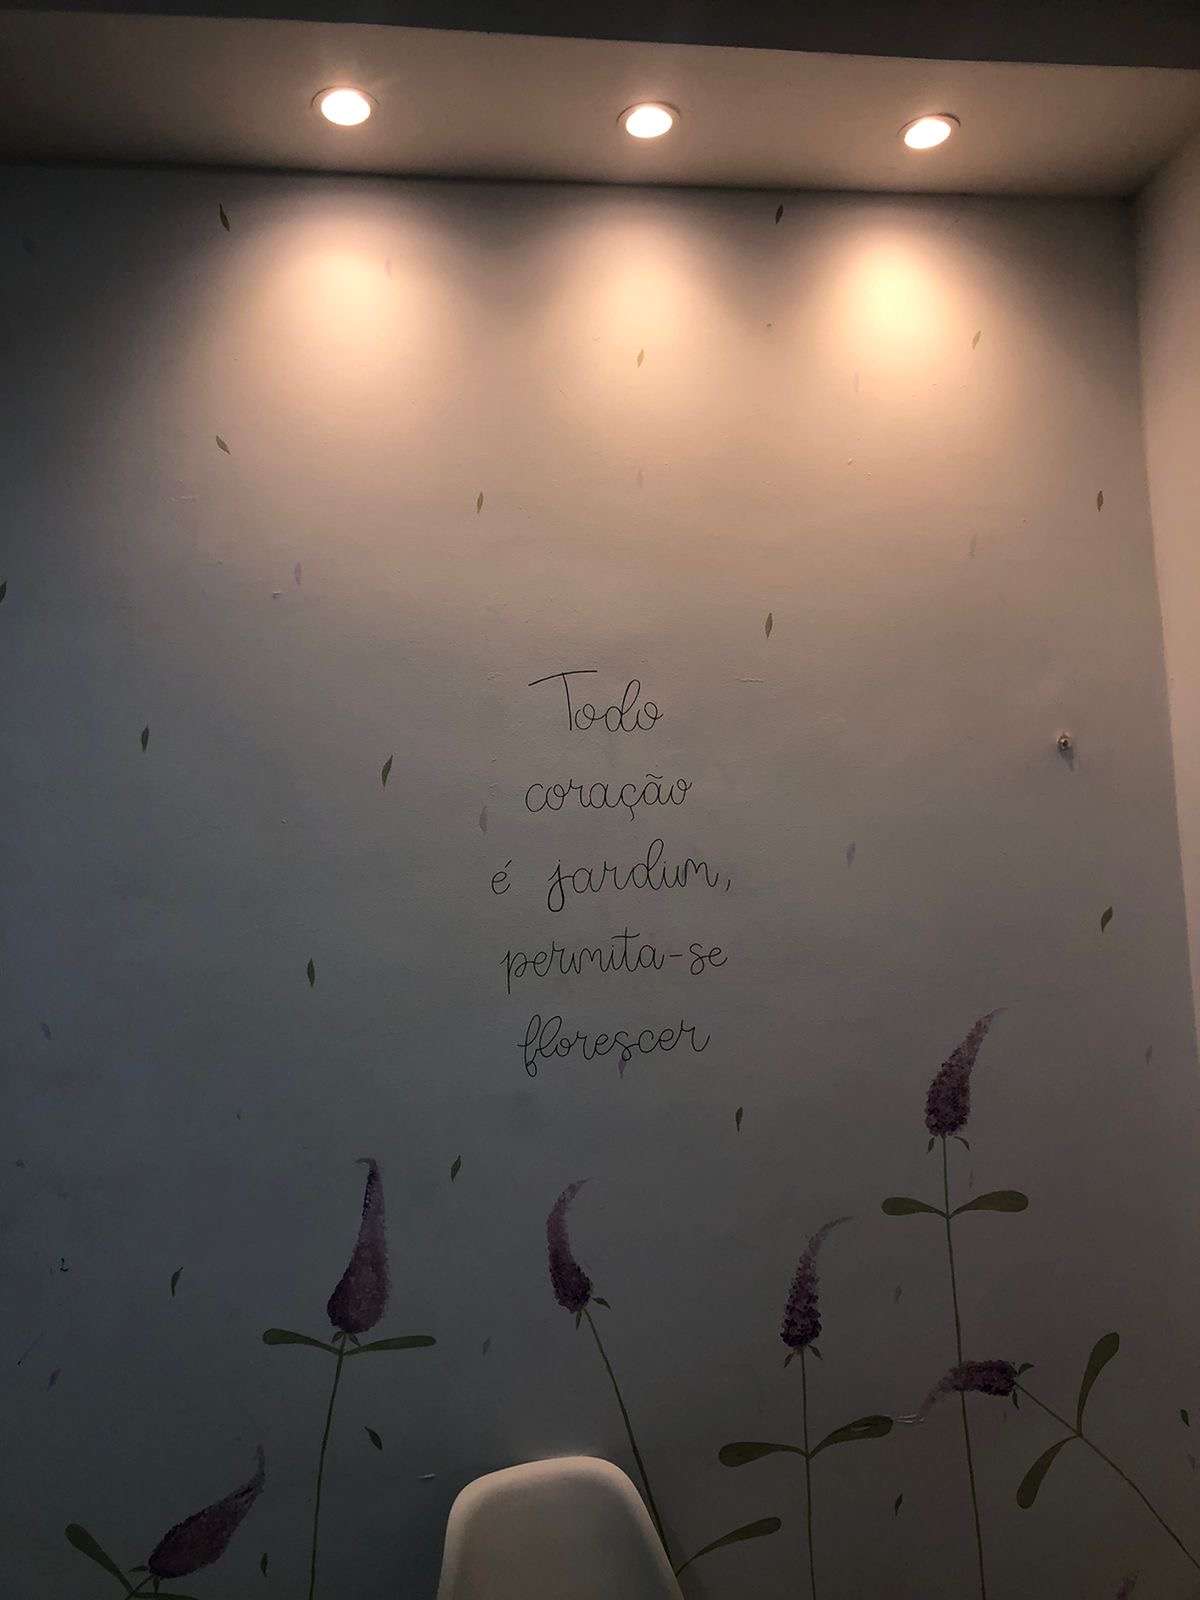 Todo
coração
é jardim,
permita-se
florescer